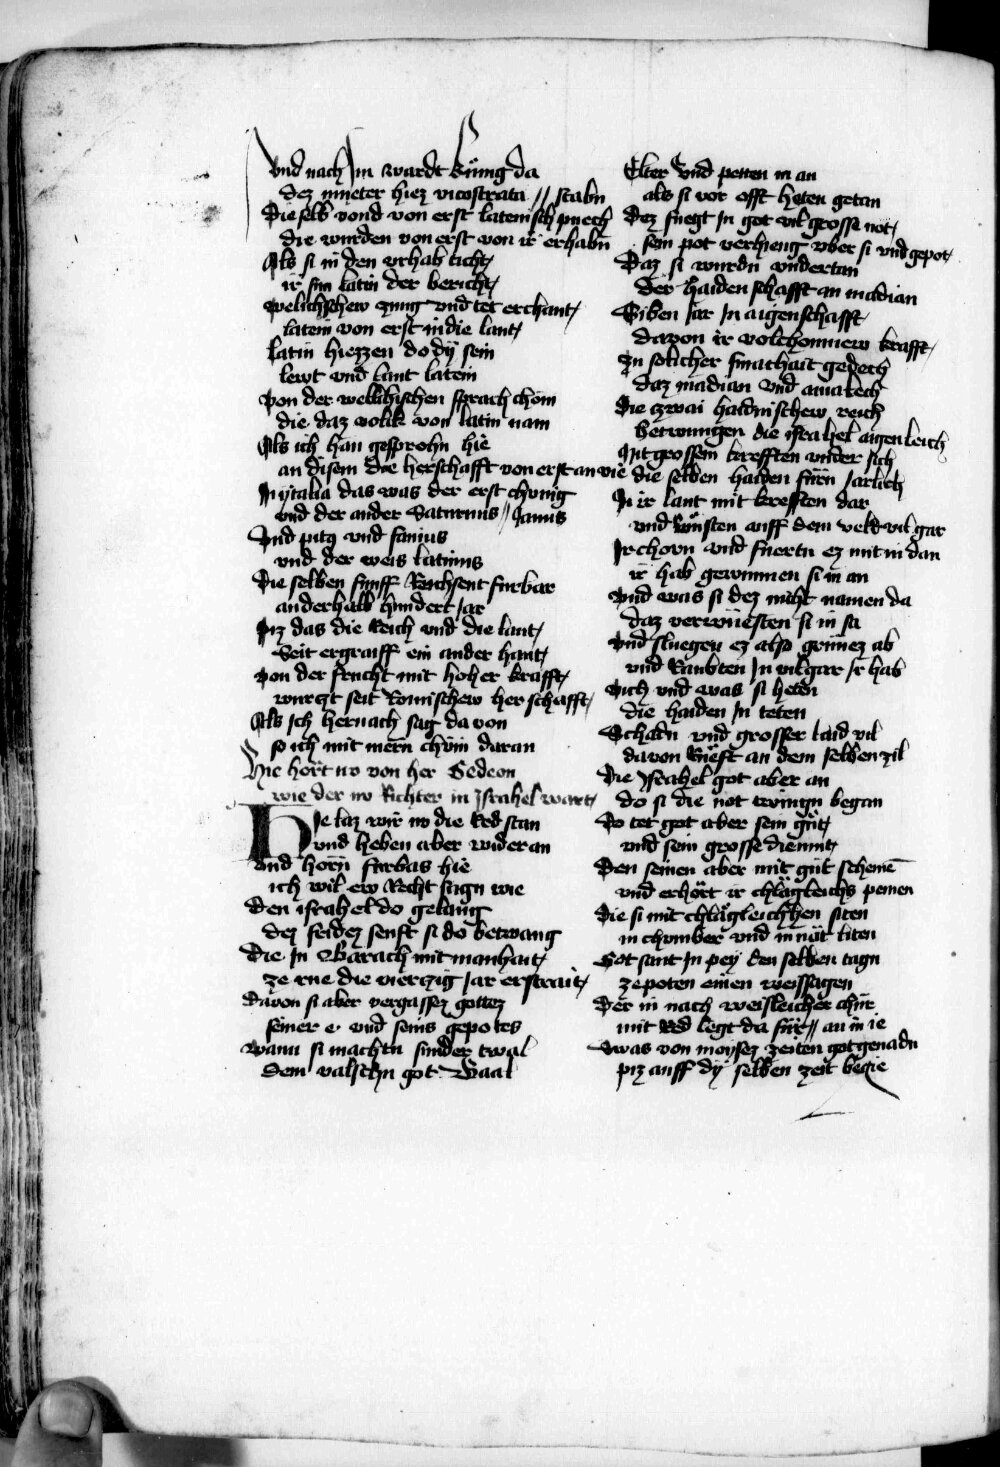 Vnd nach Im wardt kunig da
dez mueter hiez nicostrata // stabn
Die selb vond von erst lateinisch puech
die wurden von erst von ir erhabn
Als si in den vrhab ticht
ir sin latin der bericht
welichschew zung vnd tet erchant
latein von erst in die lant
latin hiezzen do dÿ sein
lewt vnd lant latein
von der wellihischen sprach chom
die daz volk von latin nam
Als ich han gesprochn hie
an disem die herschafft von erst an vie
In ytalia das was der erst chunig
vnd der ander Saturnus // Janus
Vnd pitg vnd fanius
vnd der weis latinus
Die selben funff Reichsent furbar
anderhalb hundert Jar
piz das die Reich vnd die lant
Seit ergraiff ein ander hant
von der frucht mit hoher krafft
wurczt seit Romischew herschafft
Als Ich hernach sag da von
so ich mit mern chom daran
Hie hört no von her Gedeon
wie der no Richter in Israhel wart
Hie laz wir no die Red stan
vnd heben aber wider an
vnd horn furbas hie
ich wil ew Recht sagn wie
Den israhel do gelaing
dez seidez senft si do betwang
Die In Barach mit manhait
ze rue die vierczig Jar erstrait
Davon si aber vergassez gottez
seiner e vnd seins gepotes
wann si machtn sunder twal
dem valschn got Baal
Elter Vnd petten in an
als si vor offt heten getan
Dez fuegt In got vil grosse not
sein pot verhieng vber si vnd gepot
Daz si wurdn vndertan
der haiden schafft an madian
Siben Jar In aigenschafft
davon ir volchomniew krafft
Zu solicher smachait gedech
daz madian vnd amalech
Die czwai haidnischew reich
betwungen die israhel aigenleich
Mit grossem krefften vnder sich
die selben haiden furn Jarlich
In ir lant mit kreffsten dar
vnd wüsten auff dem veld vil gar
Ir chorn vnd fuertn ez mit in dan
ir hab gewunnen si in an
Vnd was si dez nicht namen da
daz verwuesten si in sa
Vnd sluegen ez also grünez ab
vnd Raubten In vil gar Ir hab
Vich vnd was si heten
die haiden In teten
Schadn vnd grosser laid vil
davon Rüeft an dem selben zil
Die Israhel got aber an
do si die not twingn began
Do tet got aber sein güt
vnd sein grosse diemut
Den seinen aber mit güt schemē
vnd erhört ir chlägleichs pemen
Die si mit chlägleichhen siten
in chumber vnd in nöt liten
Got sant In pey den selben tagn
ze poten einen weissagen
Der in nach weisleicher chür
mit Red legt da für // an in ie
Swas von moysez zeiten got genadn
piz auff dÿ selben zeit begie